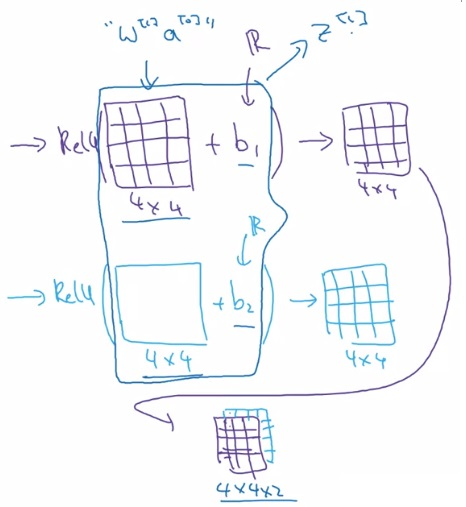 "W^[1] a^[0]" ℝ z^[1]
→ ReLU( + b₁ ) →
4×4 4×4
ℝ
→ ReLU( + b₂ ) →
4×4 4×4
4×4×2